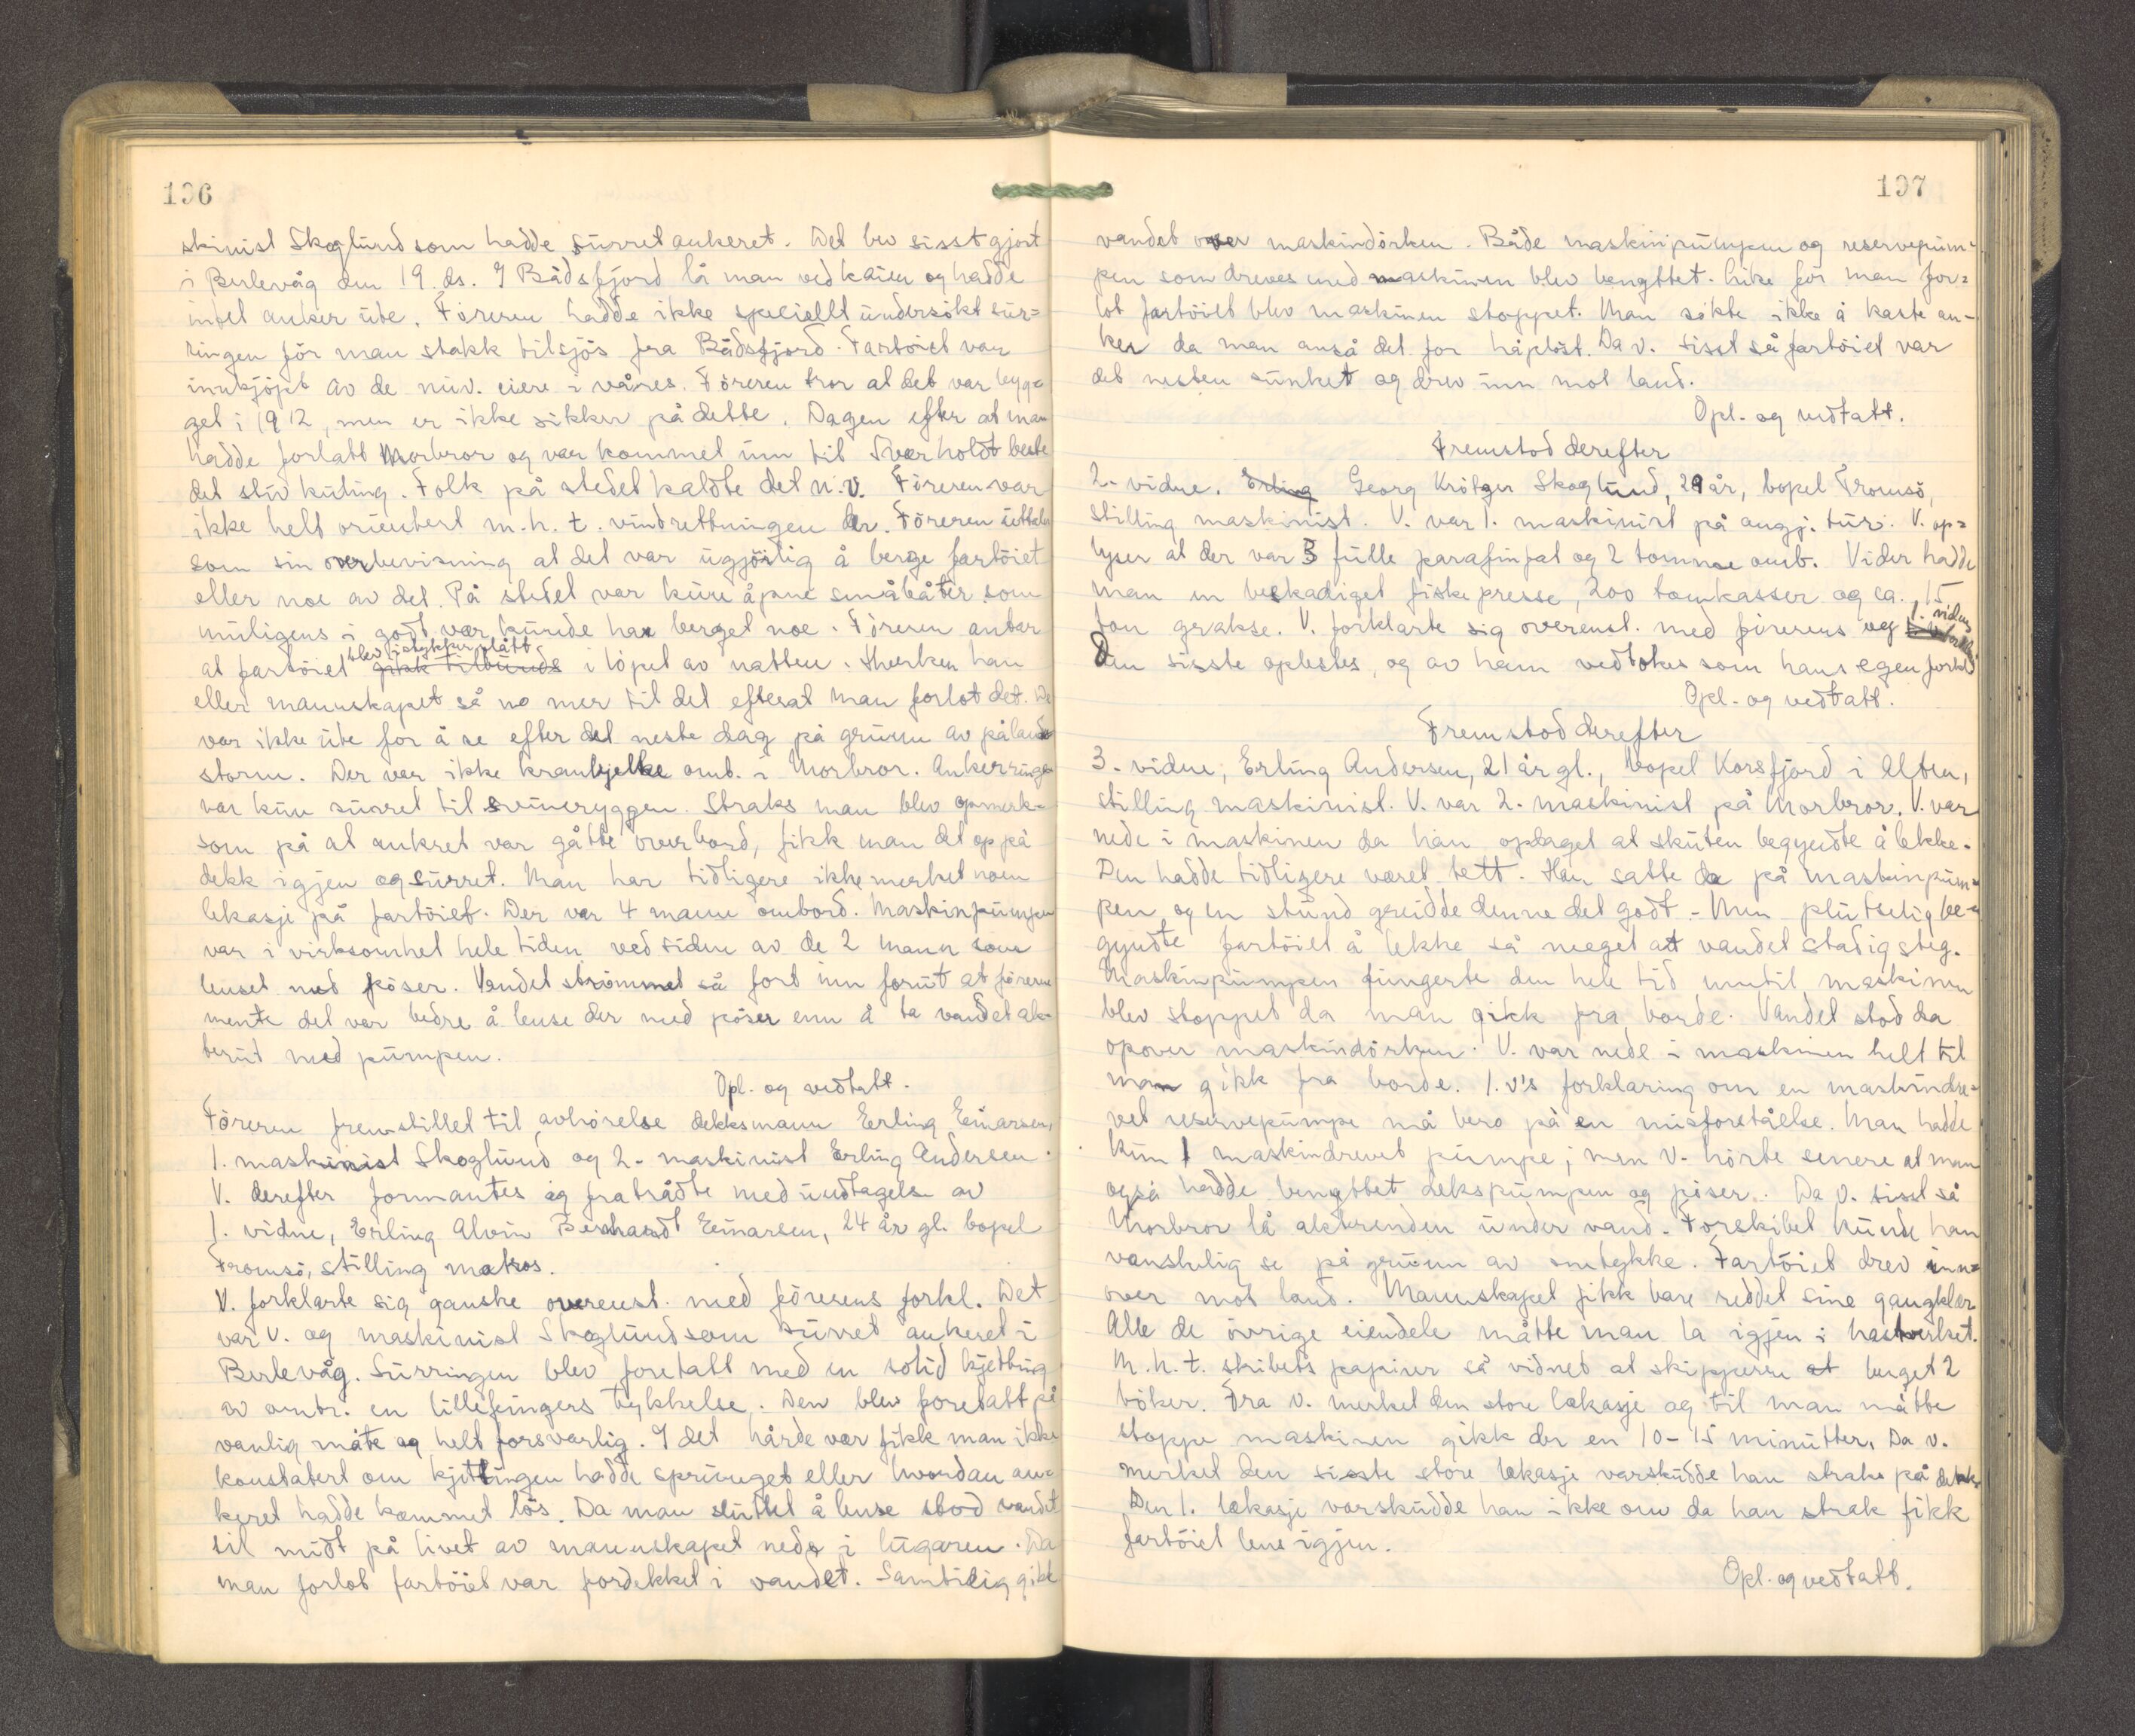 196
skinist Skoglund som hadde surret ankeret. Det blev sisst gjort
i Berlevåg den 19. ds. I Bådsfjord lå man ved kaien og hadde
intet anker ute. Föreren hadde ikke speciellt undersökt sur=
ringen för man stakk tilsjös fra Bådsfjord. Fartöiet var
innkjöpt av de nuv. eiere i våres. Föreren tror at det var bygg=
get i 1912, men er ikke sikker på dette. Dagen efter at man
hadde forlatt Morbror og var kommet inn til Sværholdt beste
det stiv kuling. Folk på stedet kaldte det n.v. Föreren var
ikke helt orientert m.h.t. vindrettningen der. Föreren uttaler
som sin overbevisning at det var ugjörlig å berge fartöiet
eller noe av det. På stedet var kun åpne småbåter som
muligens i godt vær kunde ha berget noe. Föreren antar
at fartöiet blev i stykker slått i löpet av natten. Hverken han
eller mannskapet så no mer til det efterat man forlot det. De
var ikke ute for å se efter det neste dag på grunn av pålands
storm. Der var ikke krankjelke omb. i Morbror. Ankerringen
var kun surret til svineryggen. Straks man blev opmerk=
som på at ankret var gåtte overbord, fikk man det op på
dekk igjen og surret. Man har tidligere ikke merket noen
lekasje på fartöiet. Der var 4 mann ombord. Maskinpumpen
var i virksomhet hele tiden ved siden av de 2 mann som
lenset med pöser. Vandet strömmet så fort inn forut at föreren
mente det var bedre å lense der med pöser enn å ta vandet ak=
terut med pumpen.
Opl. og vedtatt.
Föreren fremstillet til avhörelse dekksmann Erling Einarsen,
1. maskinist Skoglund og 2. maskinist Erling Andersen.
V. derefter formantes og fratrådte med undtagelse av
1. vidne, Erling Alvin Bernhardt Einarsen, 24 år gl. bopel
Tromsö, stilling matros.
V. forklarte sig ganske overenst. med förerens forkl. Det
var V. og maskinist Skoglund som surret ankeret i
Berlevåg. Surringen blev foretatt med en solid kjetting
av omtr. en lillefingers tykkelse. Den blev foretatt på
vanlig måte og helt forsvarlig. I det hårde vær fikk man ikke
konstatert om kjettingen hadde sprunget eller hvordan an=
keret hadde kommet lös. Da man sluttet å lense stod vandet
til midt på livet av mannskapet nede i lugaren. Da
man forlot fartöiet var fordekket i vandet. Samtidig gikk
197
vandet over maskindörken. Både maskinpumpen og reservepum=
pen som dreves med maskinen blev benyttet. Like för man for=
lot fartöiet blev maskinen stoppet. Man sökte ikke å kaste an=
ker da man anså det for håplöst. Da v. sisst så fartöiet var
det nesten sunket og drev inn mot land.
Opl. og vedtatt.
Fremstod derefter
2. vidne. Erling Georg Kröger Skoglund, 29 år, bopel Tromsö,
stilling maskinist. V. var 1. maskinist på angj. tur. V. op=
lyser at der var 3 fulle parafinfat og 2 tomme omb. Vider hadde
man en beskadiget fiskepresse, 200 tomkasser og ca. 15
ton grakse. V. forklarte sig overenst. med förerens og 1. vidnes
Den sisste oplestes, og av ham vedtokes som hans egen forkl.
Opl. og vedtatt.
Fremstod derefter
3. vidne, Erling Andersen, 21 år gl., bopel Korsfjord i Alten,
stilling maskinist. V. var 2. maskinist på Morbror. V. var
nede i maskinen da han opdaget at skuten begyndte å lekke.
Den hadde tidligere været tett. Han satte da på maskinpum=
pen og en stund greidde denne det godt. - Men plutselig be=
gyndte fartöiet å lekke så meget at vandet stadig steg.
Maskinpumpen fungerte den hele tid inntil maskinen
blev stoppet da man gikk fra borde. Vandet stod da
opover maskindörken. V. var nede i maskinen helt til
man gikk fra borde. 1. v's forklaring om en maskindre=
vet reservepumpe må bero på en misforståelse. Man hadde
kun 1 maskindrevet pumpe; men v. hörte senere at man
også hadde benyttet dekspumpen og pöser. Da v. sisst så
Morbror lå akterenden under vand. Forskibet kunde han
vanskelig se på grunn av snetykke. Fartöiet drev inn=
over mot land. Mannskapet fikk bare reddet sine gangklær
Alle de övrige eiendele måtte man la igjen i hastverket.
M.h.t. skibets papirer så vidnet at skipperen at berget 2
böker. Fra v. merket den store lækasje og til man måtte
stoppe maskinen gikk der en 10-15 minutter. Da v.
merket den sisste store lekasje varskudde han straks på dekk
Den 1. lækasje varskudde han ikke om da han strak fikk
fartöiet lens igjen.
Opl. og vedtatt.